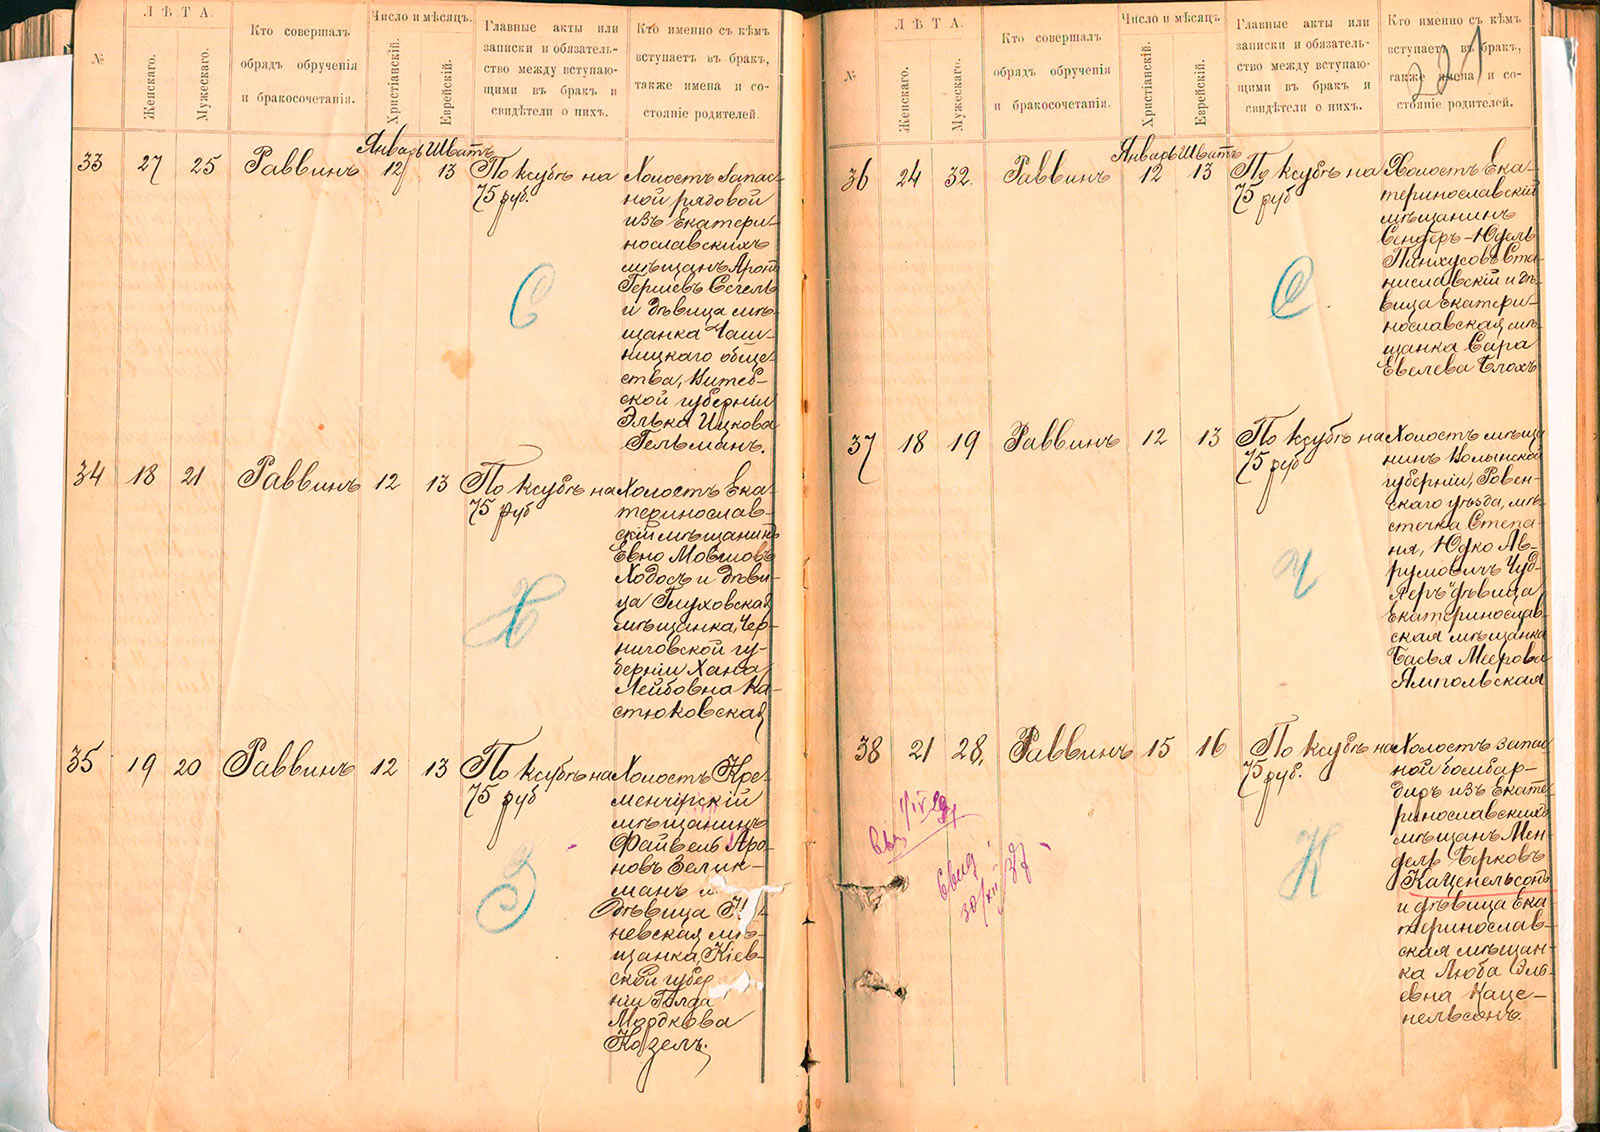 №
ЛѢТА.
Женскаго.
Мужескаго.
Кто совершалъ
обрядъ обрученія
и бракосочетанія.
Число и мѣсяцъ.
Христіанскій.
Еврейскій.
Главные акты или
записки и обязатель-
ство между вступаю-
щими въ бракъ и
свидѣтели о нихъ.
Кто именно съ кѣмъ
вступаетъ въ бракъ,
также имена и со-
стояніе родителей.
Январь Шватъ
33 27 25 Раввинъ 12 13 По ксубѣ на
75 руб.
С
Холостъ запас-
ной рядовой
изъ Екатери-
нославскихъ
мѣщанъ Аронъ
Гершевъ Сегель
и дѣвица мѣ-
щанка Чаш-
ницкаго обще-
ства, Витеб-
ской губерніи
Элька Ицкова
Гельманъ.
34 18 21 Раввинъ 12 13 По ксубѣ на
75 руб
Х
Холостъ Ека-
теринослав-
скій мѣщанинъ
Евно Мовшовъ
Ходосъ и дѣви-
ца Глуховская
мѣщанка, Чер-
ниговской гу-
берніи Хана
Лейбовна Ка-
стюковская
35 19 20 Раввинъ 12 13 По ксубѣ на
75 руб
З
Холостъ Кре-
менчугскій
мѣщанинъ
Файвель Аро-
новъ Зелик-
манъ и
дѣвица
невская мѣ-
щанка, Кіев-
ской губер
ніи Голда
Мордкова
Козелъ.
№
ЛѢТА.
Женскаго.
Мужескаго.
Кто совершалъ
обрядъ обрученія
и бракосочетанія.
Число и мѣсяцъ.
Христіанскій.
Еврейскій.
Главные акты или
записки и обязатель-
ство между вступаю-
щими въ бракъ и
свидѣтели о нихъ.
Кто именно съ кѣмъ
вступаетъ въ бракъ,
также имена и со-
стояніе родителей.
221
Январь Шватъ
36 24 32. Раввинъ 12 13 По ксубѣ на
75 руб
С
Холостъ Ека-
теринославскій
мѣщанинъ
Сендеръ-Юдель
Пинхусовъ Ста-
ниславскій и дѣ-
вица Екатери-
нославская мѣ-
щанка Сара
Евелева Блохъ
37 18 19 Раввинъ 12 13 По ксубѣ на
75 руб
Ч
Холостъ мѣща
нинъ Волынской
губерніи, Ровен-
скаго уѣзда, мѣ-
стечка Степа-
ня, Юдко Ав-
румовичъ Чуд-
леръ дѣвица
Екатеринослав-
ская мѣщанка
Басья Меерова
Ямпольская
38 21 28. Раввинъ 15 16 По ксубѣ на
75 руб.
К
Холостъ запас
ной бомбар-
диръ изъ Екате
ринославскихъ
мѣщанъ Мен-
дель Берковъ
Каценельсонъ
и дѣвица Ека-
теринослав-
ская мѣщан-
ка Люба Эль-
евна Каце-
нельсонъ.